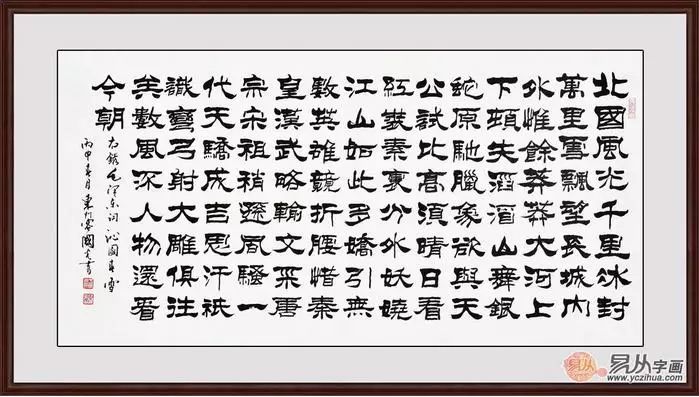 北國風光千里冰封
萬里雪飄望長城內
外惟餘莽莽大河上
下頓失滔滔山舞銀
蛇原馳臘象欲與天
公試比高須晴日看
紅裝素裹分外妖嬈
江山如此多嬌引無
數英雄競折腰惜秦
皇漢武略輸文采唐
宗宋祖稍遜風騷一
代天驕成吉思汗祇
識彎弓射大雕俱往
矣數風流人物還看
今朝
右錄毛澤東詞沁園春雪
丙申春月國光書
易从字画
www.yczihua.com